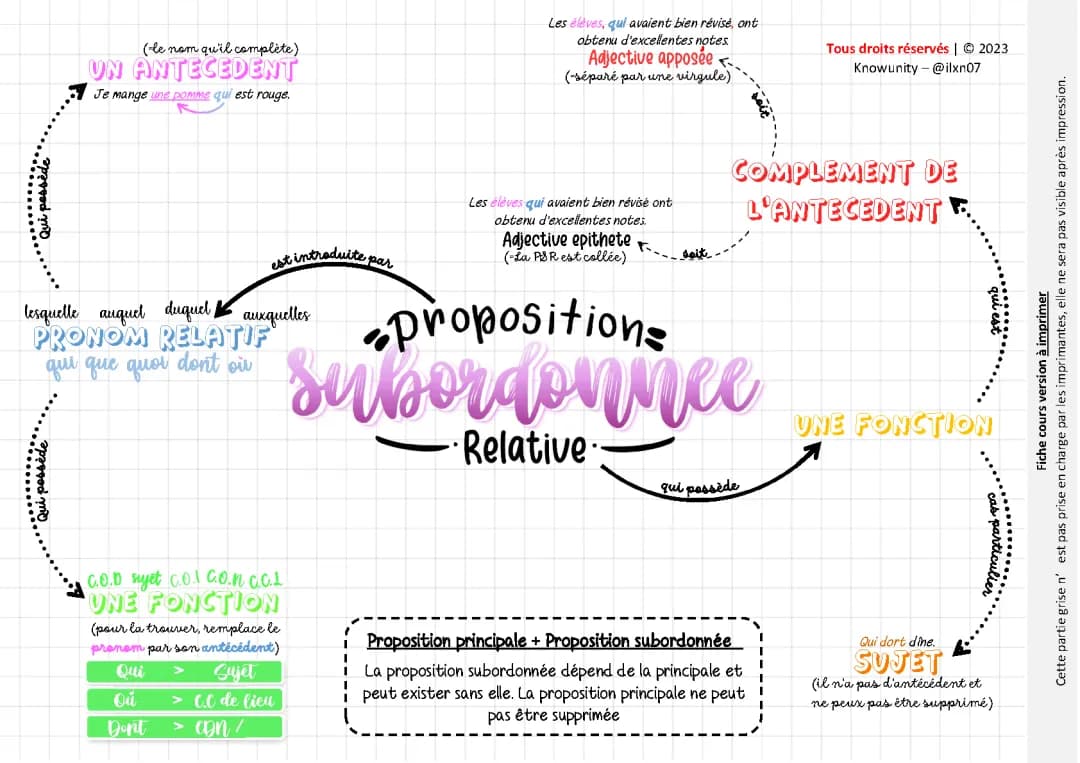 Les élèves, qui avaient bien révisé, ont
obtenu d'excellentes notes.
Adjective apposée
(=séparé par une virgule)
soit
Tous droits réservés | © 2023
Knowunity – @ilxn07
(=le nom qu'il complète)
UN ANTECEDENT
Je mange une pomme qui est rouge.
Qui possède
COMPLEMENT DE
L'ANTECEDENT
Les élèves qui avaient bien révisé ont
obtenu d'excellentes notes.
Adjective epithete
(=La PSR est collée)
soit
est introduite par
qui est
lesquelle auquel duquel auxquelles
PRONOM RELATIF
qui que quoi dont où
Proposition
Subordonnee
Relative
UNE FONCTION
qui possède
Qui possède
cas particulier
C.O.D sujet C.O.I C.O.N C.C.L
UNE FONCTION
(pour la trouver, remplace le
pronom par son antécédent)
Qui > Sujet
Où > C.C de lieu
Dont > CDN /
Proposition principale + Proposition subordonnée
La proposition subordonnée dépend de la principale et
peut exister sans elle. La proposition principale ne peut
pas être supprimée
Qui dort dîne.
SUJET
(il n'a pas d'antécédent et
ne peux pas être supprimé)
Fiche cours version à imprimer
Cette partie grise n' est pas prise en charge par les imprimantes, elle ne sera pas visible après impression.